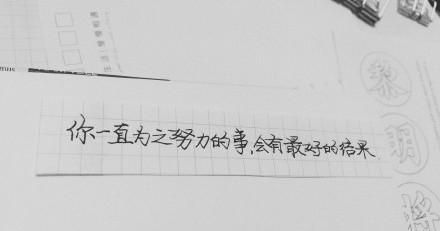 你一直为之努力的事，会有最好的结果
黎
明
将